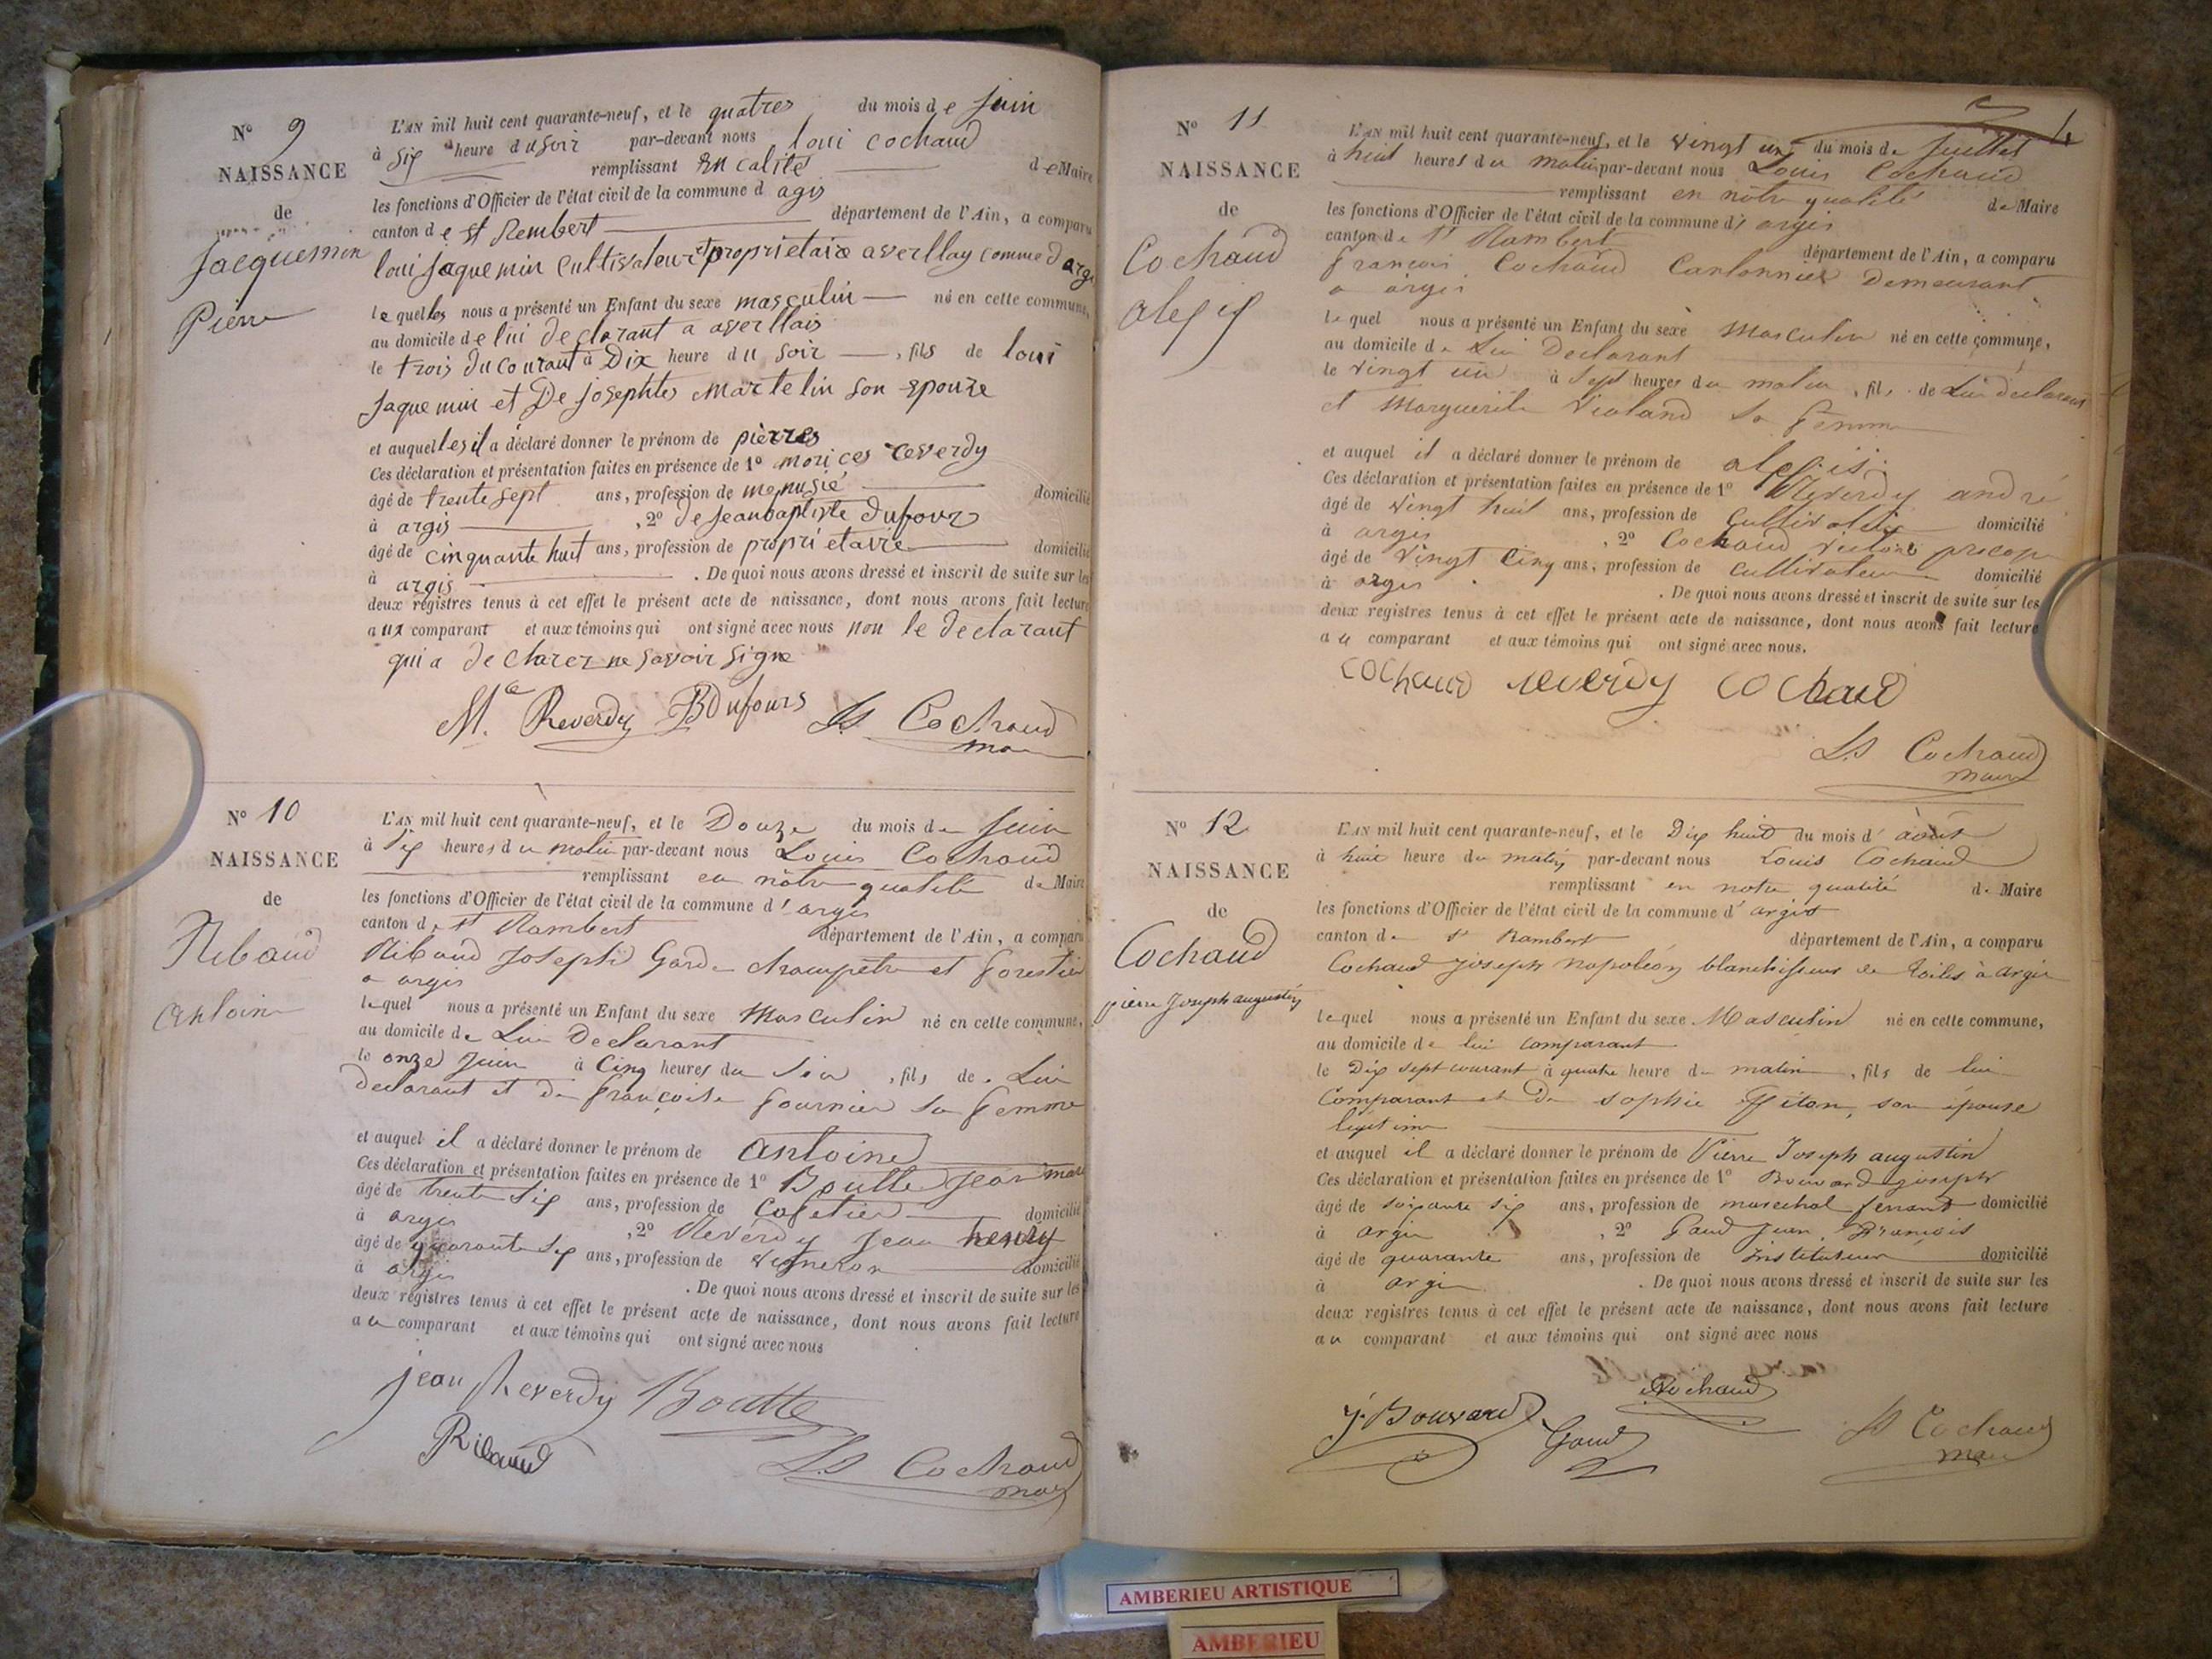 N° 9
NAISSANCE
de
Jacquemin
Pierre
L'AN mil huit cent quarante-neuf, et le quatres du mois de juin
à six heure du soir par-devant nous loui cochaud
remplissant en calites de Maire
les fonctions d'Officier de l'état civil de la commune d agis
canton de st Rembert département de l'Ain, a comparu
loui jaquemin cultivateur et propriétaire a averllay comme d argis
lequelles nous a présenté un Enfant du sexe masculin né en cette commune,
au domicile de lui declarant a averllais
le trois du courant à Dix heure du soir, fils de loui
jaquemin et De josephtes Martelin son epouze
et auquelles il a déclaré donner le prénom de pièrres
Ces déclaration et présentation faites en présence de 1° morices reverdy
âgé de trente sept ans, profession de menusié domicilié
à argis, 2° de jeanbaptiste Dufour
âgé de cinquante huit ans, profession de propriétaire domicilié
à argis. De quoi nous avons dressé et inscrit de suite sur les
deux registres tenus à cet effet le présent acte de naissance, dont nous avons fait lecture
aux comparant et aux témoins qui ont signé avec nous non le declarant
qui a declarer ne savoir signe
Mce Reverdy BDufours Ls Cochaud
maire
N° 10
NAISSANCE
de
Ribaud
Antoine
L'AN mil huit cent quarante-neuf, et le Douze du mois de Juin
à Six heures du matin par-devant nous Louis Cochaud
remplissant en nôtre qualité de Maire
les fonctions d'Officier de l'état civil de la commune d' argis
canton de St Rambert département de l'Ain, a comparu
Ribaud Joseph Garde champêtre et forestier
a argis
lequel nous a présenté un Enfant du sexe Masculin né en cette commune,
au domicile de Lui Declarant
le onze Juin à Cinq heures du Soir, fils de Lui
declarant et de françoise fournier sa femme
et auquel il a déclaré donner le prénom de Antoine
Ces déclaration et présentation faites en présence de 1° Boutte Jean marie
âgé de trente six ans, profession de Cafetier domicilié
à argis, 2° Reverdy Jean
âgé de quarante six ans, profession de Vigneron domicilié
à argis. De quoi nous avons dressé et inscrit de suite sur les
deux registres tenus à cet effet le présent acte de naissance, dont nous avons fait lecture
au comparant et aux témoins qui ont signé avec nous
jean Reverdy Boutte
Ribaud
Ls Cochaud
maire
4
N° 11
NAISSANCE
de
Cochaud
alexis
L'AN mil huit cent quarante-neuf, et le vingt un du mois de Juillet
à huit heures du matin par-devant nous Louis Cochaud
remplissant en nôtre qualité de Maire
les fonctions d'Officier de l'état civil de la commune d' argis
canton de St Rambert département de l'Ain, a comparu
françois Cochaud Cantonnier Demeurant
a argis
lequel nous a présenté un Enfant du sexe Masculin né en cette commune,
au domicile de Lui Declarant
le vingt un à Sept heures du matin, fils de Lui declarant
et Marguerite Violand sa femme
et auquel il a déclaré donner le prénom de alexis
Ces déclaration et présentation faites en présence de 1° Reverdy andré
âgé de vingt huit ans, profession de Cultivateur domicilié
à argis, 2° Cochaud victoire procop
âgé de vingt cinq ans, profession de cultivateur domicilié
à argis. De quoi nous avons dressé et inscrit de suite sur les
deux registres tenus à cet effet le présent acte de naissance, dont nous avons fait lecture
au comparant et aux témoins qui ont signé avec nous.
cochaud reverdy cochaud
Ls Cochaud
maire
N° 12
NAISSANCE
de
Cochaud
pierre Joseph augustin
L'AN mil huit cent quarante-neuf, et le Dix huit du mois d' août
à huit heure du matin par-devant nous Louis Cochaud
remplissant en notre qualité de Maire
les fonctions d'Officier de l'état civil de la commune d' argis
canton de St Rambert département de l'Ain, a comparu
Cochaud joseph napoléon blanchisseur de toiles à argis
lequel nous a présenté un Enfant du sexe Masculin né en cette commune,
au domicile de lui comparant
le Dix sept courant à quatre heure du matin, fils de lui
Comparant et De sophie son épouse
légitime
et auquel il a déclaré donner le prénom de Pierre Joseph augustin
Ces déclaration et présentation faites en présence de 1° Bouvard joseph
âgé de soixante six ans, profession de marechal ferrant domicilié
à argis, 2° Gaud Jean François
âgé de quarante ans, profession de instituteur domicilié
à argis. De quoi nous avons dressé et inscrit de suite sur les
deux registres tenus à cet effet le présent acte de naissance, dont nous avons fait lecture
au comparant et aux témoins qui ont signé avec nous
Cochaud
J. Bouvard Gaud Ls Cochaud
maire
AMBERIEU ARTISTIQUE
AMBERIEU